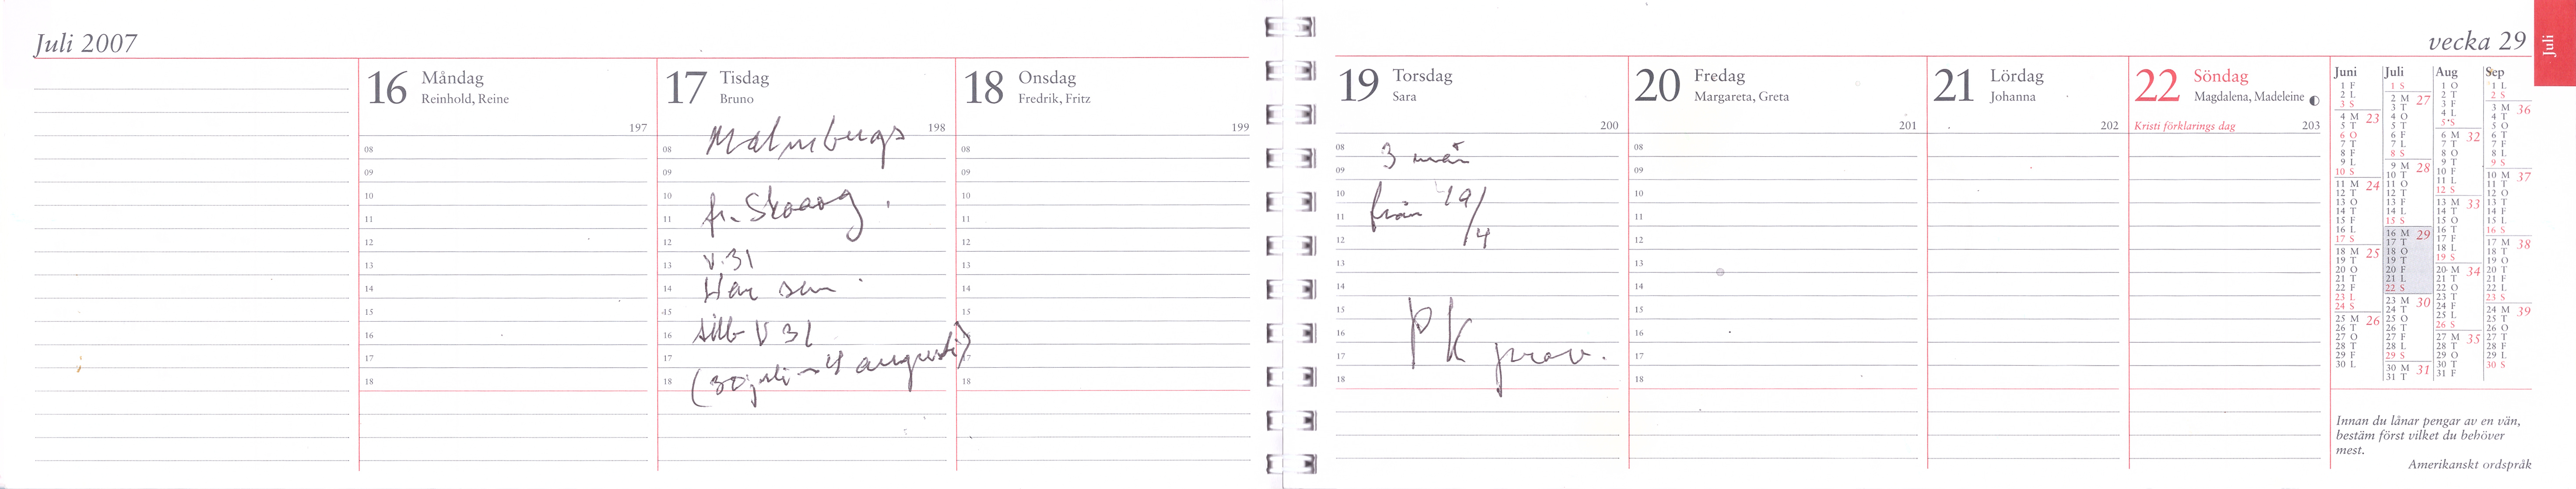 Juli 2007
16 Måndag
Reinhold, Reine
197
08
09
10
11
12
13
14
15
16
17
18
17 Tisdag
Bruno
198
Malmbergs
08
09
10
fr. Skoaog.
11
12
13 V. 31
14 Har sem
15
16 sillb V 31
17
18 (30 juli - 4 augusti)
18 Onsdag
Fredrik, Fritz
199
08
09
10
11
12
13
14
15
16
17
18
vecka 29
Juli
19 Torsdag
Sara
200
08 3 mån
09
10
11 från 19/4
12
13
14
15
16 PK prov.
17
18
20 Fredag
Margareta, Greta
201
08
09
10
11
12
13
14
15
16
17
18
21 Lördag
Johanna
202
22 Söndag
Magdalena, Madeleine
Kristi förklarings dag 203
Juni
1 F
2 L
3 S
4 M 23
5 T
6 O
7 T
8 F
9 L
10 S
11 M 24
12 T
13 O
14 T
15 F
16 L
17 S
18 M 25
19 T
20 O
21 T
22 F
23 L
24 S
25 M 26
26 T
27 O
28 T
29 F
30 L
Juli
1 S
2 M 27
3 T
4 O
5 T
6 F
7 L
8 S
9 M 28
10 T
11 O
12 T
13 F
14 L
15 S
16 M 29
17 T
18 O
19 T
20 F
21 L
22 S
23 M 30
24 T
25 O
26 T
27 F
28 L
29 S
30 M 31
31 T
Aug
1 O
2 T
3 F
4 L
5 S
6 M 32
7 T
8 O
9 T
10 F
11 L
12 S
13 M 33
14 T
15 O
16 T
17 F
18 L
19 S
20 M 34
21 T
22 O
23 T
24 F
25 L
26 S
27 M 35
28 T
29 O
30 T
31 F
Sep
1 L
2 S
3 M 36
4 T
5 O
6 T
7 F
8 L
9 S
10 M 37
11 T
12 O
13 T
14 F
15 L
16 S
17 M 38
18 T
19 O
20 T
21 F
22 L
23 S
24 M 39
25 T
26 O
27 T
28 F
29 L
30 S
Innan du lånar pengar av en vän,
bestäm först vilket du behöver
mest.
Amerikanskt ordspråk